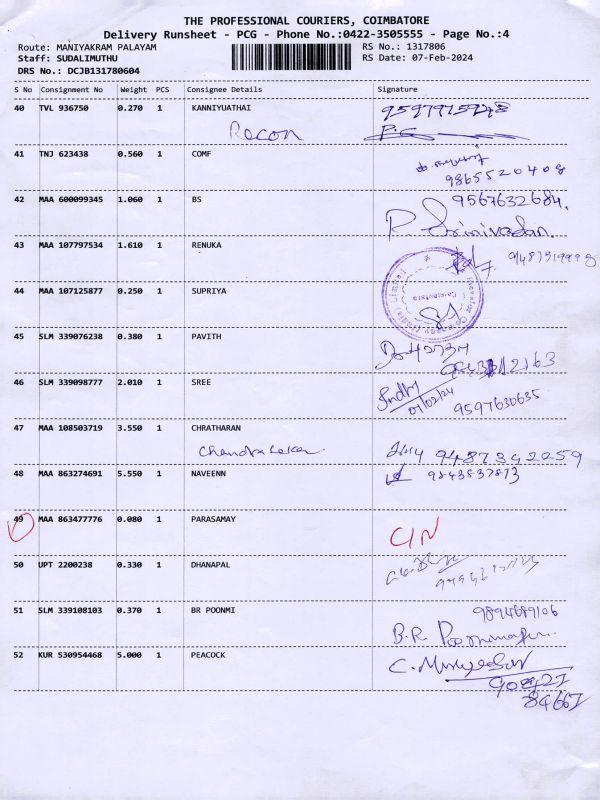 THE PROFESSIONAL COURIERS, COIMBATORE
Delivery Runsheet - PCG - Phone No.:0422-3505555 - Page No.:4
Route: MANIYAKRAM PALAYAM
RS No.: 1317806
Staff: SUDALIMUTHU
RS Date: 07-Feb-2024
DRS No.: DCJB131780604
S No Consignment No Weight PCS Consignee Details Signature
40 TVL 936750 0.270 1 KANNIYUATHAI
Recon
41 TNJ 623438 0.560 1 COMF
9865520408
42 MAA 600099345 1.060 1 BS 9567632684.
R Srinivasan.
43 MAA 107797534 1.610 1 RENUKA
44 MAA 107125877 0.250 1 SUPRIYA
45 SLM 339076238 0.380 1 PAVITH
46 SLM 339098777 2.010 1 SREE
07/02/24 9597630635
47 MAA 108503719 3.550 1 CHRATHARAN
9487342059
48 MAA 863274691 5.550 1 NAVEENN 9843837873
49 MAA 863477776 0.080 1 PARASAMAY
C/N
50 UPT 2200238 0.330 1 DHANAPAL
51 SLM 339108103 0.370 1 BR POONMI
B.R
52 KUR 530954468 5.000 1 PEACOCK
84667